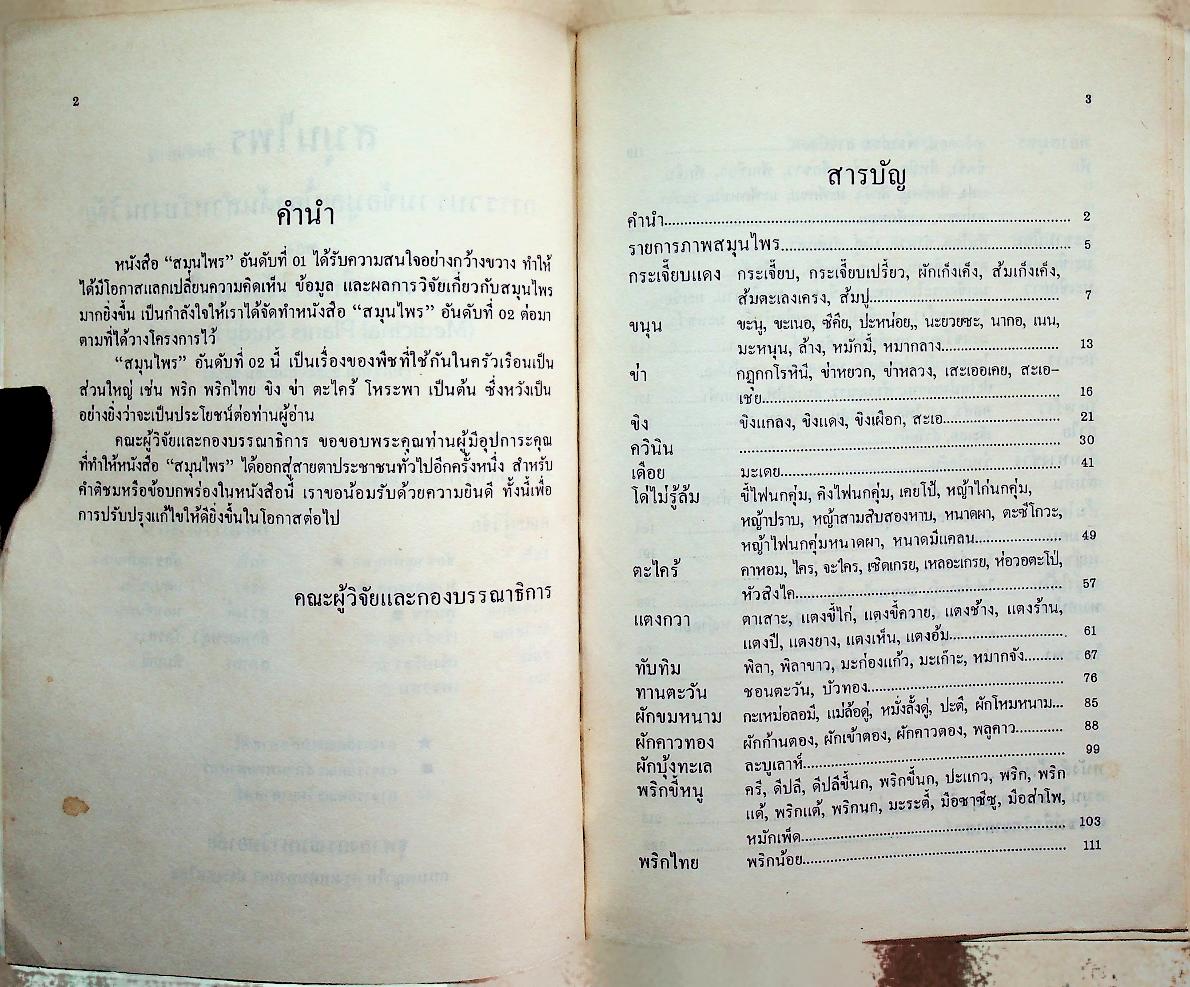 2
คำนำ
หนังสือ “สมุนไพร” อันดับที่ 01 ได้รับความสนใจอย่างกว้างขวาง ทำให้
ได้มีโอกาสแลกเปลี่ยนความคิดเห็น ข้อมูล และผลการวิจัยเกี่ยวกับสมุนไพร
มากยิ่งขึ้น เป็นกำลังใจให้เราได้จัดทำหนังสือ “สมุนไพร” อันดับที่ 02 ต่อมา
ตามที่ได้วางโครงการไว้
“สมุนไพร” อันดับที่ 02 นี้ เป็นเรื่องของพืชที่ใช้กันในครัวเรือนเป็น
ส่วนใหญ่ เช่น พริก พริกไทย ขิง ข่า ตะไคร้ โหระพา เป็นต้น ซึ่งหวังเป็น
อย่างยิ่งว่าจะเป็นประโยชน์ต่อท่านผู้อ่าน
คณะผู้วิจัยและกองบรรณาธิการ ขอขอบพระคุณท่านผู้มีอุปการะคุณ
ที่ทำให้หนังสือ “สมุนไพร” ได้ออกสู่สายตาประชาชนทั่วไปอีกครั้งหนึ่ง สำหรับ
คำติชมหรือข้อบกพร่องในหนังสือนี้ เราขอน้อมรับด้วยความยินดี ทั้งนี้เพื่อ
การปรับปรุงแก้ไขให้ดียิ่งขึ้นในโอกาสต่อไป
คณะผู้วิจัยและกองบรรณาธิการ
3
สารบัญ
คำนำ 2
รายการภาพสมุนไพร 5
กระเจี๊ยบแดง กระเจี๊ยบ, กระเจี๊ยบเปรี้ยว, ผักเก็งเค็ง, ส้มเก็งเค็ง,
ส้มตะเลงเครง, ส้มปู 7
ขนุน ขะนู, ขะเนอ, ซีคึย, ปะหน่อย,, นะยวยซะ, นากอ, เนน,
มะหนุน, ล้าง, หมักมี้, หมากลาง 13
ข่า กฎุกกโรหินี, ข่าหยวก, ข่าหลวง, เสะเออเคย, สะเอ-
เชย 16
ขิง ขิงแกลง, ขิงแดง, ขิงเผือก, สะเอ 21
ควินิน 30
เดือย มะเดย 41
โด่ไม่รู้ล้ม ขี้ไฟนกคุ่ม, คิงไฟนกคุ่ม, เคยโป้, หญ้าไก่นกคุ่ม,
หญ้าปราบ, หญ้าสามสิบสองหาบ, หนาดผา, ตะชีโกวะ,
หญ้าไฟนกคุ่มหนาดผา, หนาดมีแคลน 49
ตะไคร้ คาหอม, ไคร, จะไคร, เชิดเกรย, เหลอะเกรย, ห่อวอตะโป่,
หัวสิงไค 57
แตงกวา ตาเสาะ, แตงขี้ไก่, แตงขี้ควาย, แตงช้าง, แตงร้าน,
แตงปี, แตงยาง, แตงเห็น, แตงอ้ม 61
ทับทิม พิลา, พิลาขาว, มะก่องแก้ว, มะเก๊าะ, หมากจัง 67
ทานตะวัน ชอนตะวัน, บัวทอง 76
ผักขมหนาม กะเหม่อลอมี, แม่ล้อดู่, หมั่งลั้งดู่, ปะตี, ผักโหมหนาม 85
ผักคาวทอง ผักก้านตอง, ผักเข้าตอง, ผักคาวตอง, พลูคาว 88
ผักบุ้งทะเล ละบูเลาห์ 99
พริกขี้หนู ครี, ดีปลี, ดีปลีขี้นก, พริกขี้นก, ปะแกว, พริก, พริก
แด้, พริกแต้, พริกนก, มะระตี้, มือซาซีซู, มือส่าโพ,
หมักเพ็ด 103
พริกไทย พริกน้อย 111